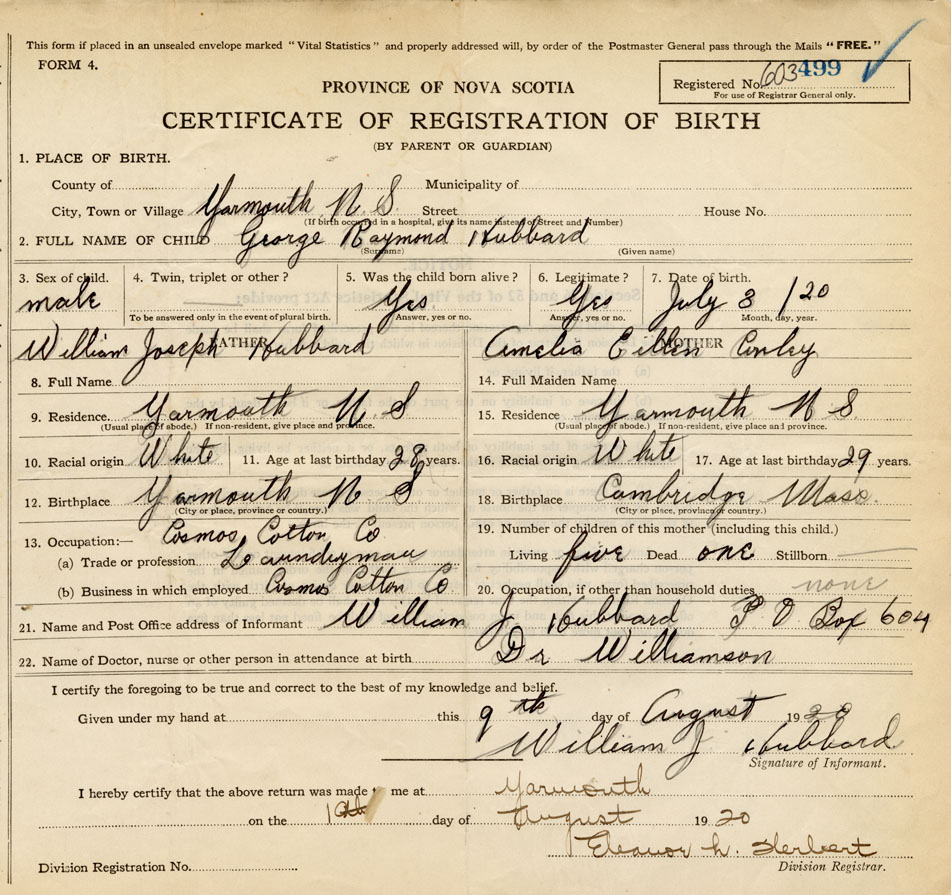 This form if placed in an unsealed envelope marked "Vital Statistics" and properly addressed will, by order of the Postmaster General pass through the Mails "FREE."
FORM 4.
Registered No. 603499
For use of Registrar General only.
PROVINCE OF NOVA SCOTIA
CERTIFICATE OF REGISTRATION OF BIRTH
(BY PARENT OR GUARDIAN)
1. PLACE OF BIRTH.
County of Municipality of
City, Town or Village Yarmouth N. S. Street House No.
(If birth occurred in a hospital, give its name instead of Street and Number)
2. FULL NAME OF CHILD George Raymond Hubbard
(Surname) (Given name)
3. Sex of child. 4. Twin, triplet or other? 5. Was the child born alive? 6. Legitimate? 7. Date of birth.
male Yes Yes July 3 / 20
To be answered only in the event of plural birth. Answer, yes or no. Answer, yes or no. Month, day, year.
FATHER MOTHER
William Joseph Hubbard Amelia Eillen Conley
8. Full Name 14. Full Maiden Name
9. Residence. Yarmouth N. S 15. Residence Yarmouth N S.
(Usual place of abode.) If non-resident, give place and province. (Usual place of abode.) If non-resident, give place and province.
10. Racial origin White 11. Age at last birthday 28 years. 16. Racial origin White 17. Age at last birthday 29 years.
12. Birthplace Yarmouth N. S 18. Birthplace Cambridge Mass.
(City or place, province or country.) (City or place, province or country.)
13. Occupation:— Cosmos Cotton Co 19. Number of children of this mother (including this child.)
(a) Trade or profession Laundryman Living five Dead one Stillborn
(b) Business in which employed Cosmos Cotton Co. 20. Occupation, if other than household duties, none
21. Name and Post Office address of Informant William J. Hubbard P O Box 604
22. Name of Doctor, nurse or other person in attendance at birth Dr Williamson
I certify the foregoing to be true and correct to the best of my knowledge and belief.
Given under my hand at this 9th day of August 1920
William J Hubbard
Signature of Informant.
I hereby certify that the above return was made to me at Yarmouth
on the 10th day of August 1920
Eleanor h. Herbert
Division Registration No. Division Registrar.